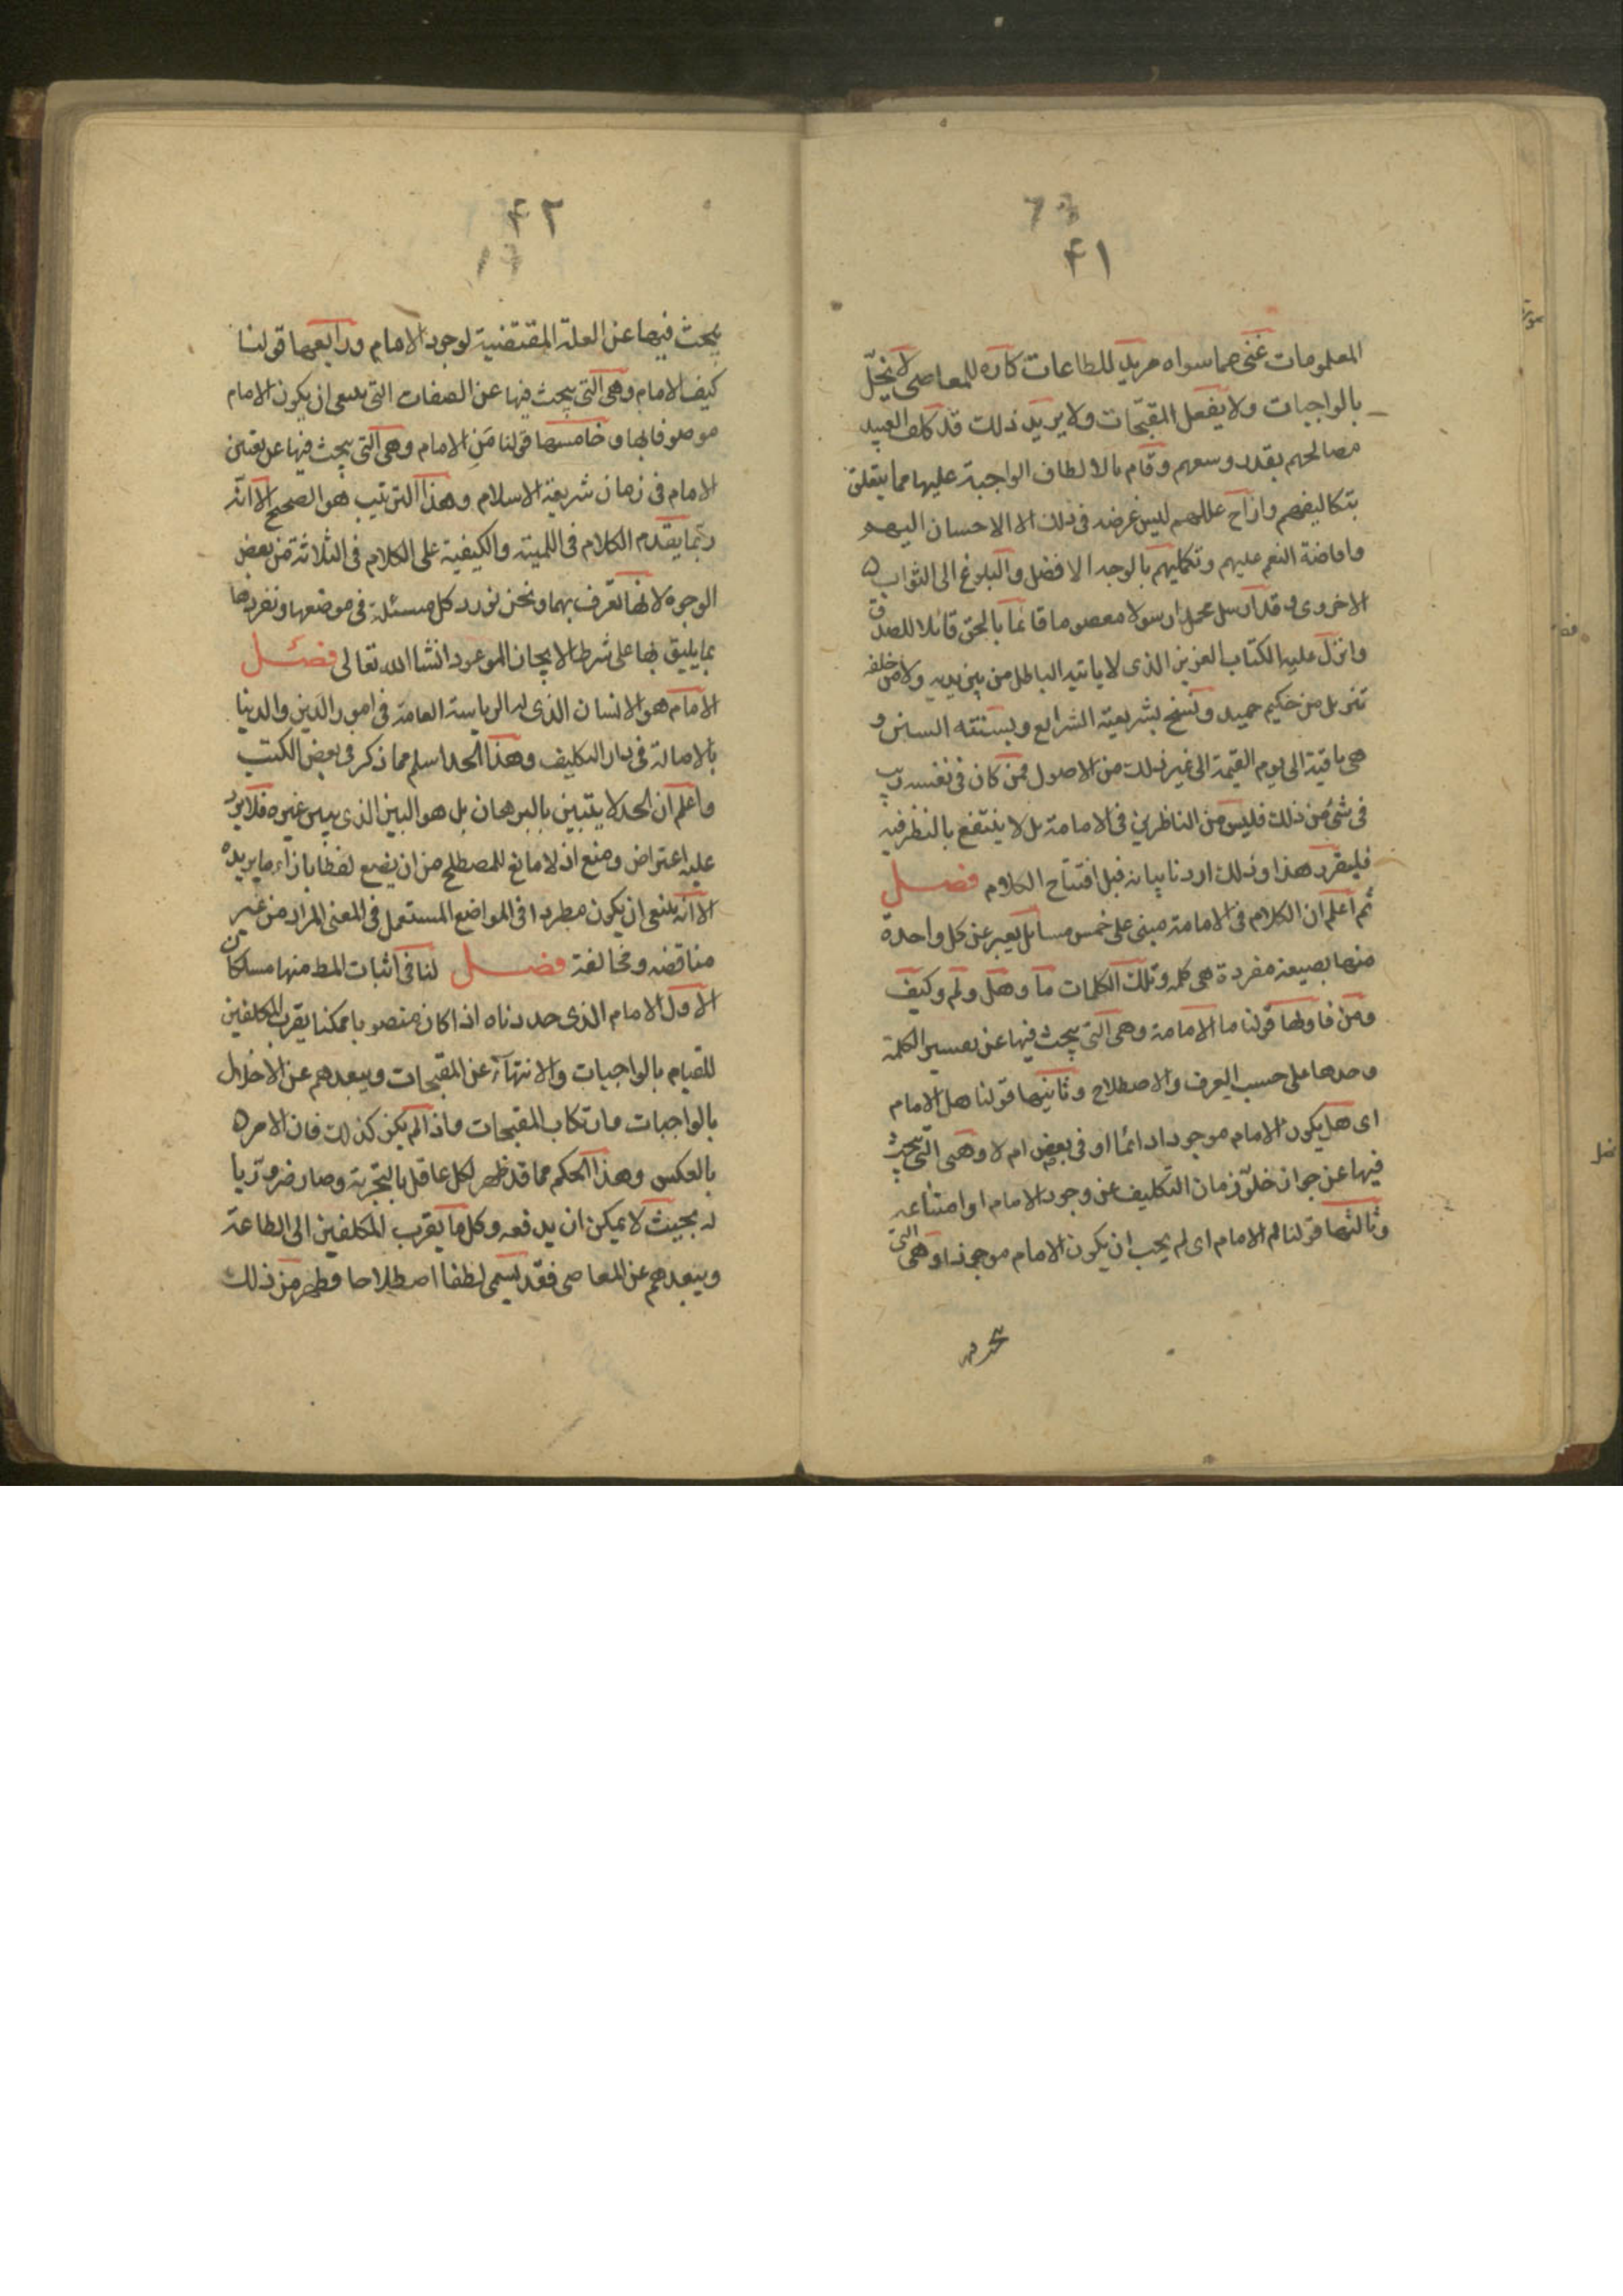 ٤١
المعلومات غنى عما سواه مريد للطاعات كاره للمعاصى لا يخلّ
بالواجبات ولا يفعل المقبّحات ولا يريد ذلك قد كلف العبيد
مصالحهم بقدر وسعهم وقام بالالطاف الواجبة عليها مما يتعلق
بتكاليفهم وازاح عللهم ليس غرضه فى ذلك الا الاحسان اليهم
وافاضة النعم عليهم وتكليهم بالوجه الافضل والبلوغ الى الثواب
الاخروى وقد ارسل محمدا رسولا معصوما قائما بالحق قائلا للصدق
وانزل عليه الكتاب العزيز الذى لا ياتيه الباطل من بين يديه ولا من خلفه
تنزيل من حكيم حميد ونسخ بشريعته الشرايع وبسنته السنن و
هى باقية الى يوم القيمة الى غير ذلك من الاصول فمن كان فى نفسه ريب
فى شئ من ذلك فليس من الناظرين فى الامامة بل لا ينتفع بالنظر فيه
فليقرر هذا وذلك اردنا بيانه قبل افتتاح الكلام فصل
ثم اعلم ان الكلام فى الامامة مبنى على خمس مسائل يعبر عن كل واحدة
منها بصيغة مفردة هى كله وتلك الكلمات ما وهل ولم وكيف
ومن فاولها قولنا ما الامامة وهى التى يبحث فيها عن تفسير الكلمة
وحدها على حسب العرف والاصطلاح وثانيها قولنا هل الامام
اى هل يكون الامام موجودا دائما او فى بعض ام لا وهى التى يبحث
فيها عن جواز خلوّ زمان التكليف عن وجود الامام او امتناعه
وثالثها قولنا لم الامام اى لم يجب ان يكون الامام موجودا وهى التى
٤٢
يبحث فيها عن العلة المقتضية لوجود الامام ورابعها قولنا
كيف الامام وهى التى يبحث فيها عن الصفات التى ينبغى ان يكون الامام
موصوفا بها وخامسها قولنا من الامام وهى التى يبحث فيها عن تعيين
الامام فى زمان شريعة الاسلام وهذا الترتيب هو الصحيح الا انّه
ربّما يقدم الكلام فى اللمية والكيفية على الكلام فى الثلاثة من بعض
الوجوه لانها تعرف بهما ونحن نورد كل مسئلة فى موضعها ونفردها
بما يليق بها على شرط الايجاز الموعود انشا الله تعالى فصل
الامام هو الانسان الذى له الرياسة العامة فى امور الدين والدنيا
بالاصالة فى دار التكليف وهذا الحد اسلم مما ذكر فى بعض الكتب
واعلم ان الحد لا يتبين بالبرهان بل هو البين الذى يبين غيره فلا يرد
عليه اعتراض ومنع اذ لا مانع للمصطلح من ان يضع لفظا بازاء ما يريده
الا انّه ينبغى ان يكون مطردا فى المواضع المستعمل فى المعنى المراد من غير
مناقضة ومخالفة فصل لنا فى اثبات المط منها مسلكان
الاول الامام الذى حددناه اذا كان منصوبا ممكنا يقرب المكلفين
للقيام بالواجبات والانتهاء عن المقبحات ويبعدهم عن الاخلال
بالواجبات وارتكاب المقبحات واذا لم يكن كذلك فان الامر
بالعكس وهذا الحكم مما قد ظهر لكل عاقل بالتجربة وصار ضروريا
له بحيث لا يمكن ان يدفعه وكل ما يقرب المكلفين الى الطاعة
ويبعدهم عن المعاصى فقد يسمى لطفا اصطلاحا فظهر من ذلك